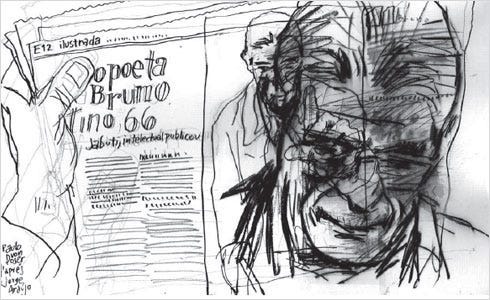 E12 ilustrada
o poeta
Bruno
tino 66
Jabuti, intelectual publicou
Paulo
von
Poser
d'après
Jorge
Araújo